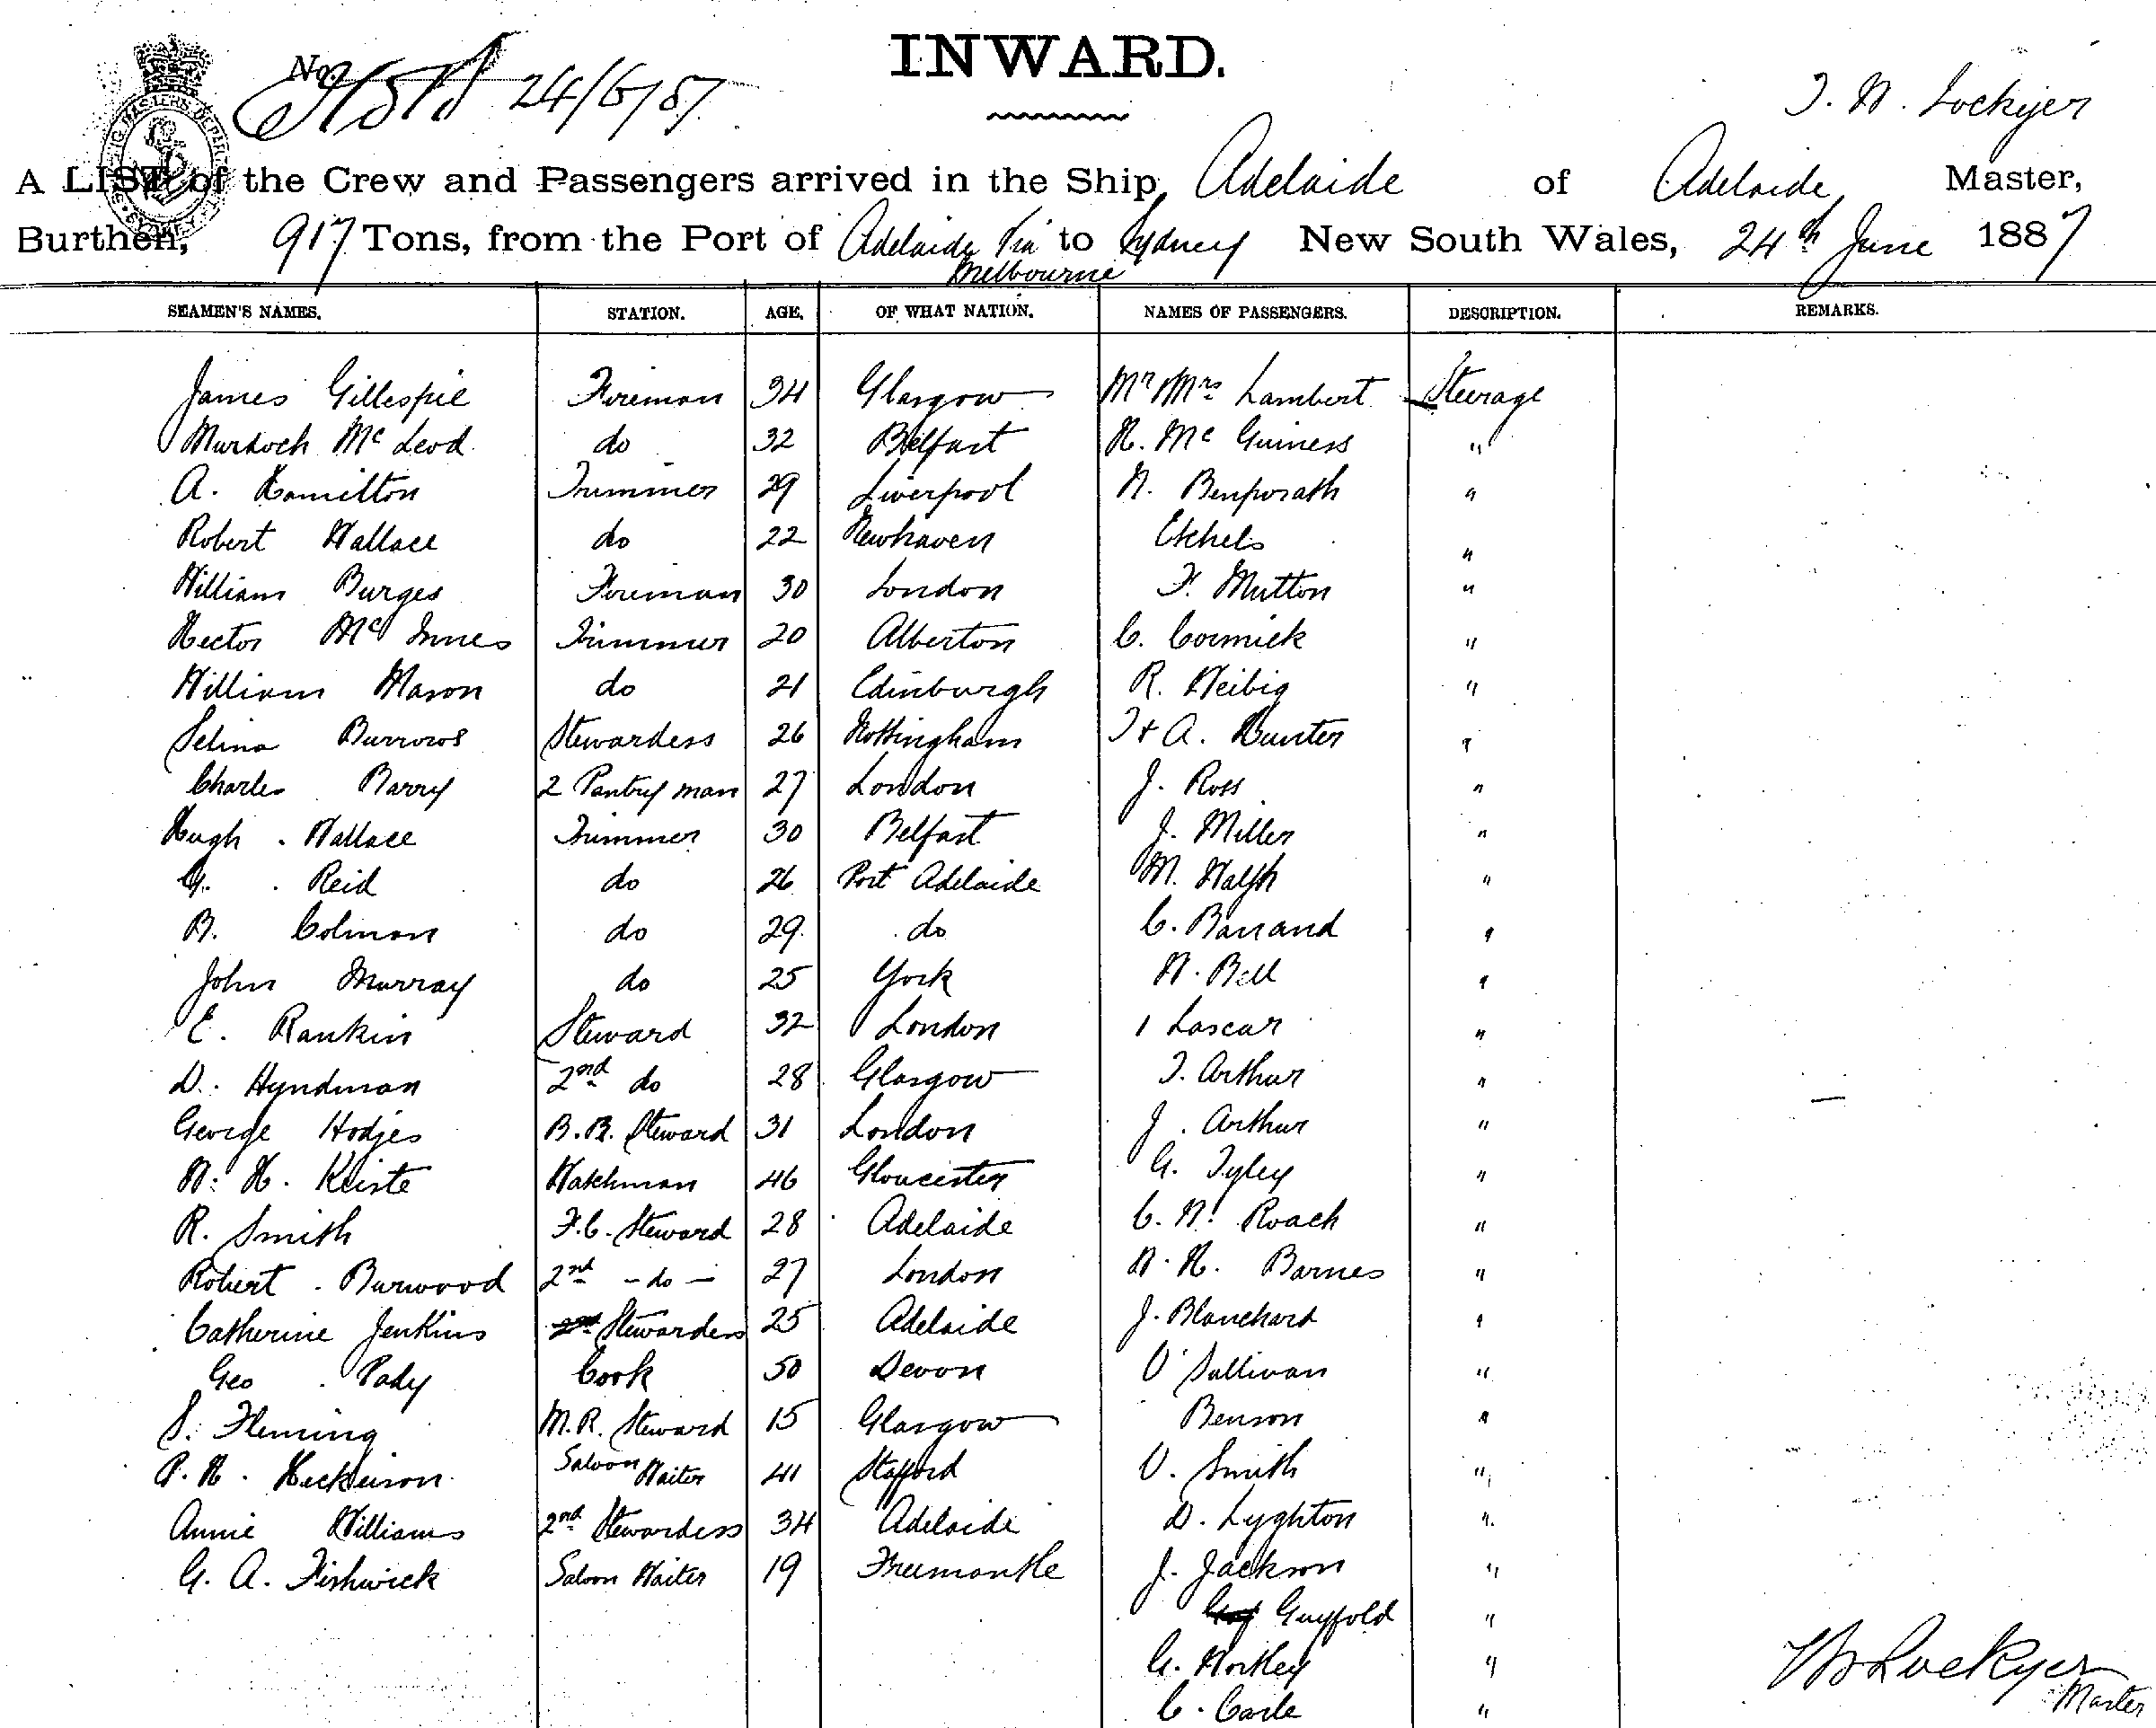 INWARD.
No. 24/6/87
T. W. Lockyer
A LIST of the Crew and Passengers arrived in the Ship Adelaide of Adelaide Master,
Burthen, 917 Tons, from the Port of Adelaide Via Melbourne to Sydney New South Wales, 24th June 1887
SEAMEN'S NAMES. STATION. AGE. OF WHAT NATION. NAMES OF PASSENGERS. DESCRIPTION. REMARKS.
James Gillespie Fireman 34 Glasgow Mr Mrs Lambert Steerage
Murdoch Mc Leod do 32 Belfast H. Mc Guiness "
A. Hamilton Trimmer 29 Liverpool W. Benporath "
Robert Wallace do 22 Newhaven Etchels "
William Burges Fireman 30 London F. Mutton "
Hector Mc Innes Trimmer 20 Alberton C. Cormick "
William Mason do 21 Edinburgh R. Weibig "
Selina Burrows Stewardess 26 Nottingham T & A. Hunter "
Charles Barry 2 Pantry man 27 London J. Ross "
Hugh Wallace Trimmer 30 Belfast J. Miller "
G. Reid do 26 Port Adelaide M. Walsh "
B. Colman do 29 do C. Barrand "
John Murray do 25 York W. Bell "
E. Rankin Steward 32 London 1 Lascar "
D. Hyndman 2nd do 28 Glasgow T. Arthur "
George Hodjes B.R. Steward 31 London J. Arthur "
W. H. Kliste Watchman 46 Gloucester G. Tyley "
R. Smith F.C. Steward 28 Adelaide C. W. Roach "
Robert Burwood 2nd - do - 27 London W. H. Barnes "
Catherine Jenkins Stewardess 25 Adelaide J. Blanchard "
Geo Pady Cook 50 Devon O'Sullivan "
S. Fleming M.R. Steward 15 Glasgow Benson "
P. H. Saloon Waiter 41 Stafford O. Smith "
Annie Williams 2nd Stewardess 34 Adelaide D. Lyghton "
G. A. Fishwick Saloon Waiter 19 Freemantle J. Jackson "
Guyfold "
G. Workey "
C. Carle "
Lockyer
Master